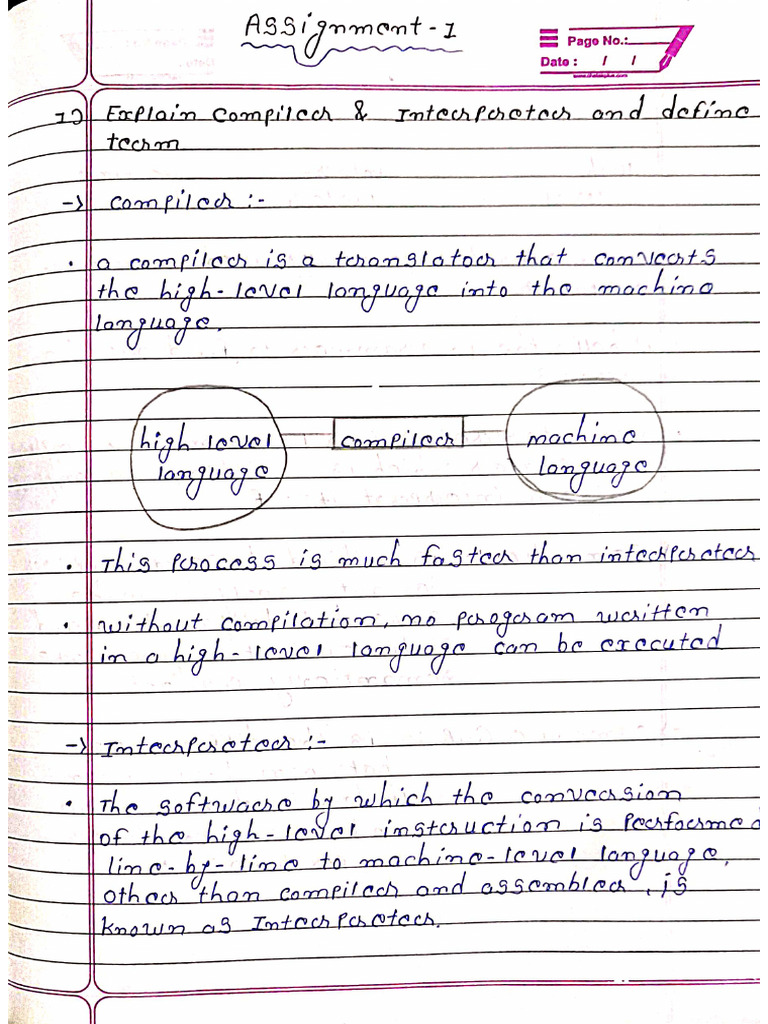 Assignment - 1
Page No.:
Date : / /
1) Explain Compiler & Interpreter and define
term
-> Compiler :-
• a compiler is a translator that converts
the high-level language into the machine
language.
high level
language
compiler
machine
language
• This process is much faster than interpreter
• without compilation, no program written
in a high-level language can be executed
-> Interpreter :-
• The software by which the conversion
of the high-level instruction is performed
line-by-line to machine-level language,
other than compiler and assembler, is
known as Interpreter.